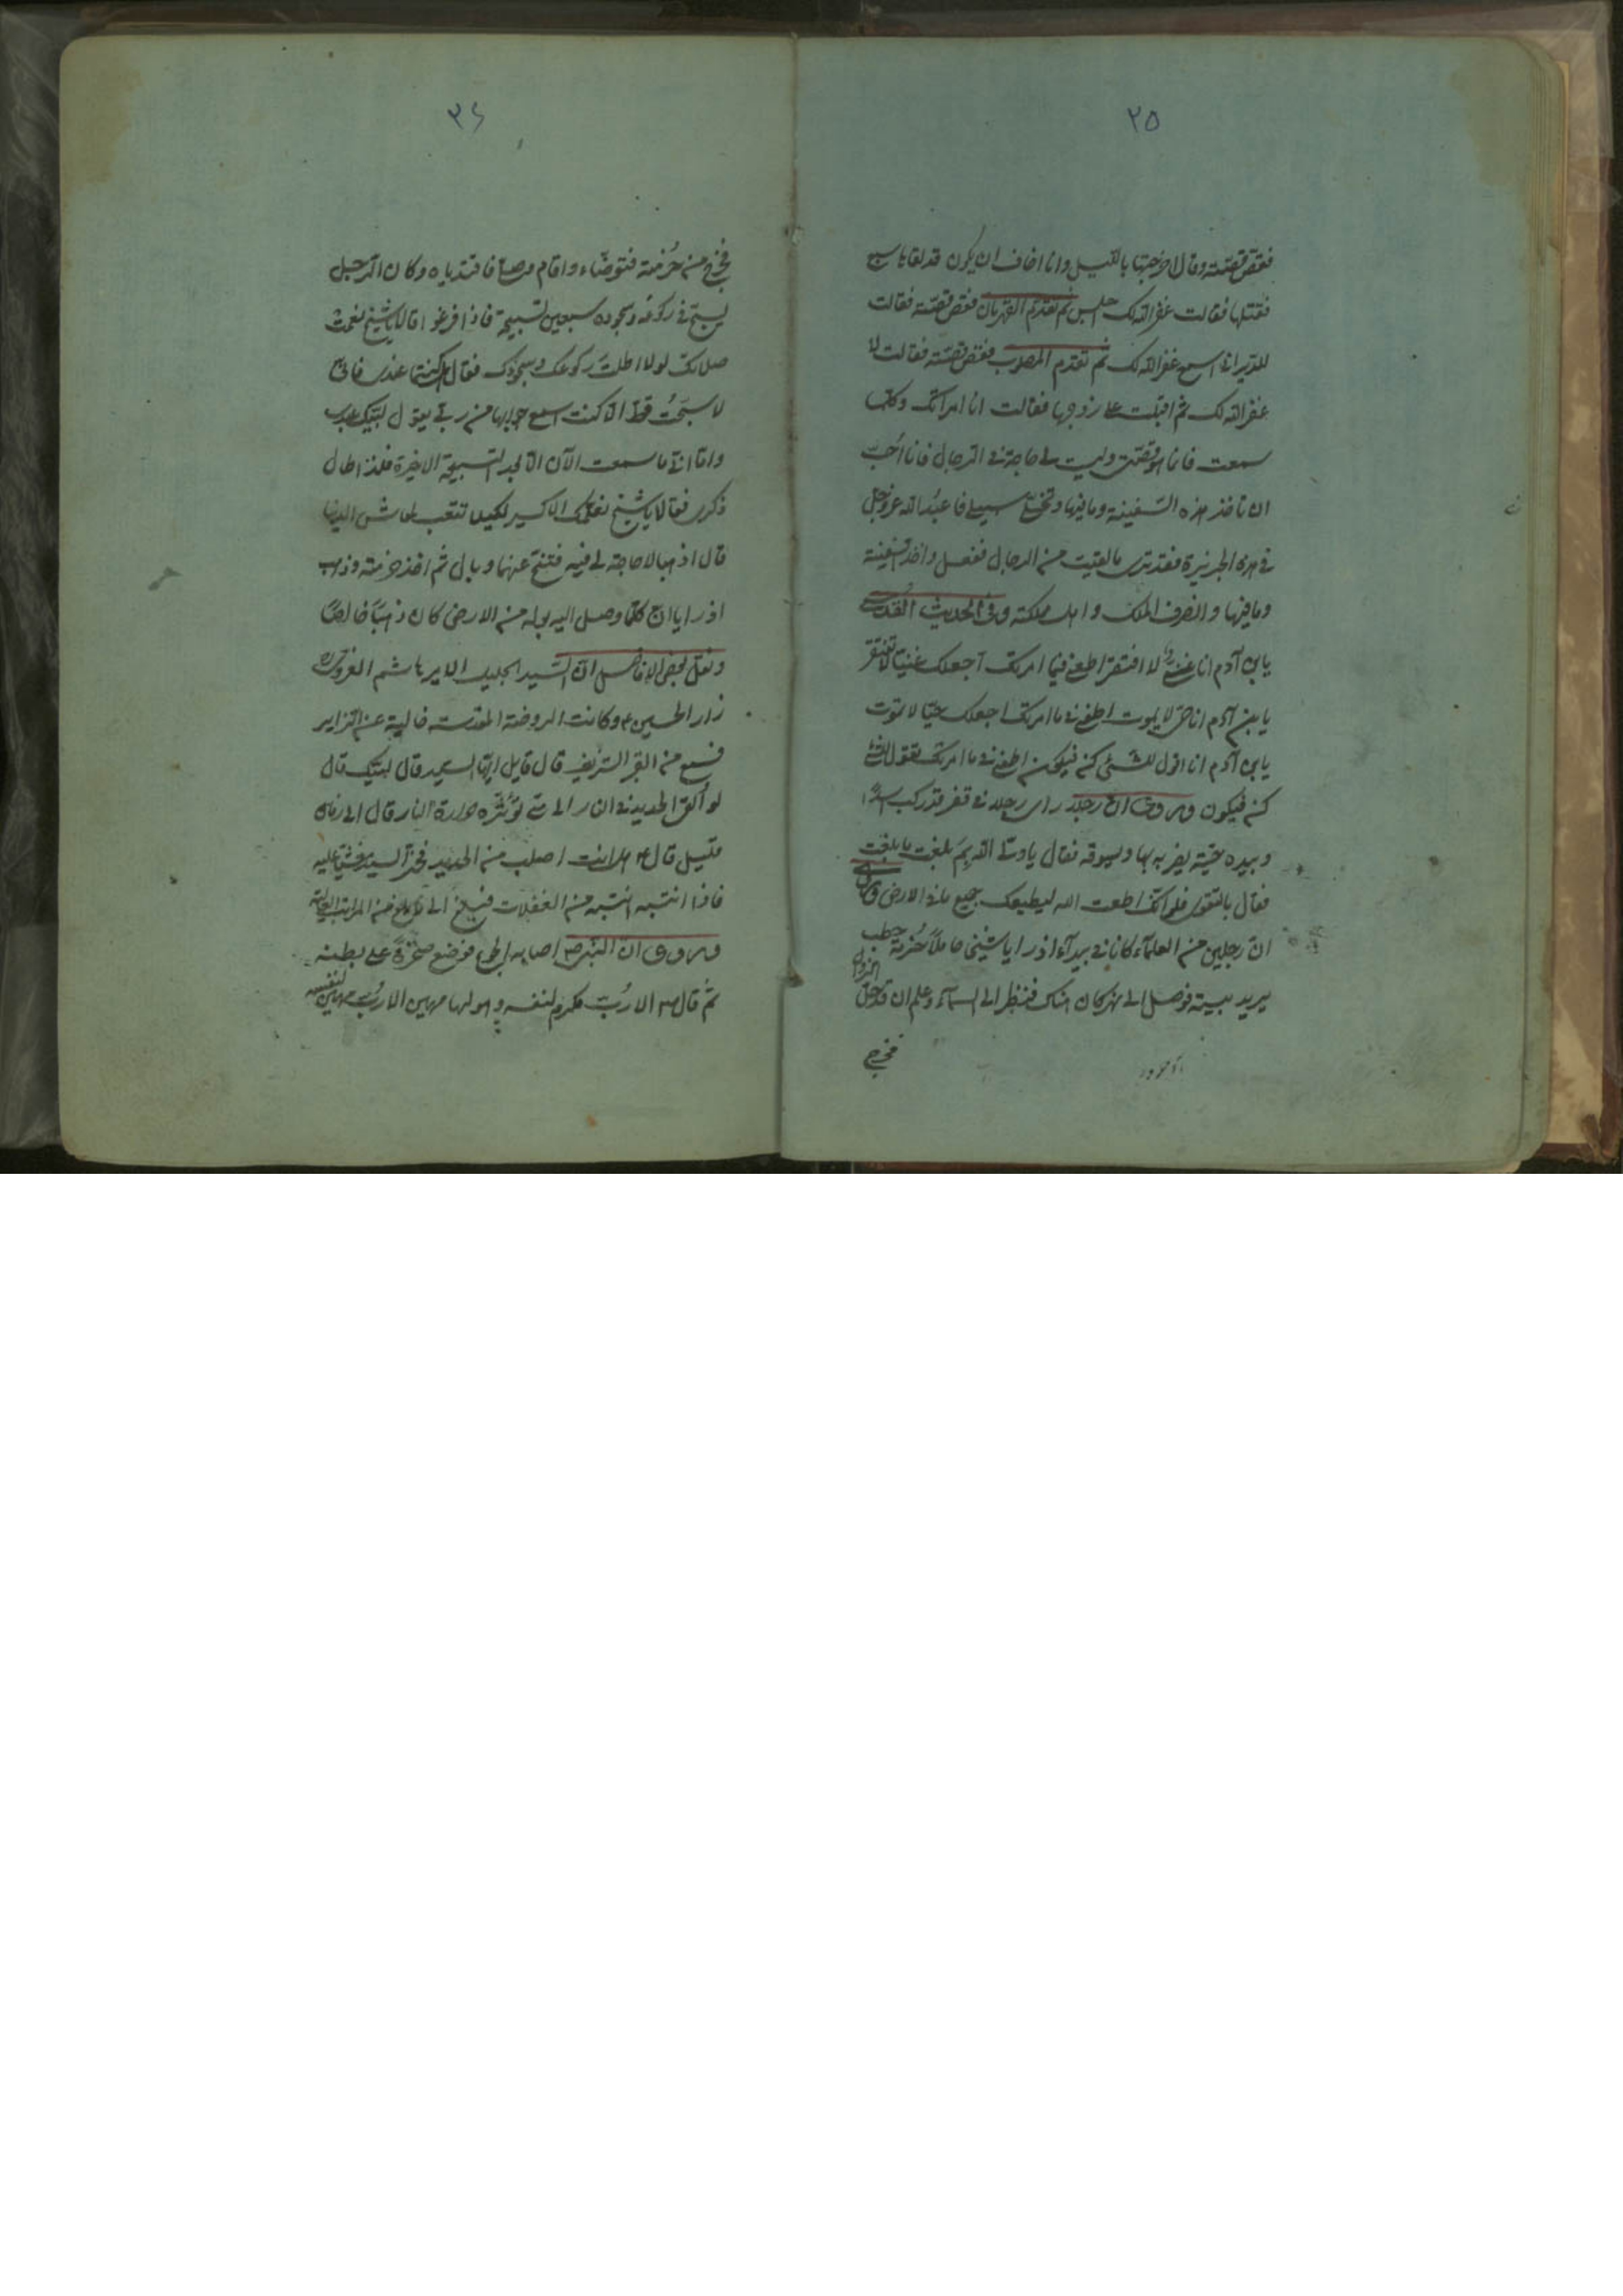 ٢٥
فقص قصته وقال اخرجتها بالليل وانا اخاف ان يكون قد لقاها سبع
فقتلها فقالت غفر الله لك اجلس ثم تقدم القهرمان فقص قصته فقالت
للديراني اسمع غفر الله لك ثم تقدم المصلوب فقص قصته فقالت لا
غفر الله لك ثم اقبلت على زوجها فقالت انا امراتك وكلما
سمعت فانما هو قصتي وليست لي حاجة في الرجال فانا احب
ان تاخذ هذه السفينة وما فيها وتخلي سبيلي فاعبد الله عز وجل
في هذه الجزيرة فقد ترى ما لقيت من الرجال ففعل واخذ السفينة
وما فيها وانصرف الملك واهل مملكته وفي الحديث القدسي
يابن آدم انا غني لا افتقر اطعني فيما امرتك اجعلك غنيا لا تفتقر
يا بن آدم انا حي لا يموت اطعني في ما امرتك اجعلك حيا لا تموت
يابن آدم انا اقول للشئ كن فيكون اطعني في ما امرتك تقول للشئ
كن فيكون وروى ان رجلا راى رجلا في قفر قد ركب اسدا
وبيده حية يضربه بها ويسوقه فقال يا ولي الله بم بلغت ما بلغت
فقال بالتقوى فلو انك اطعت الله ليطيعك جميع ما في الارض وروى
ان رجلين من العلماء كانا في بيداء اذ رايا شيخا حاملا حزمة حطب
يريد بيته فوصل الى نهر كان هناك فنظر الى السماء وعلم ان قد حل الزوال
فخرج
٣٦
فخرج من حزمته فتوضاء واقام وصلى فاقتدياه وكان الرجل
يسبح في ركوعه وسجوده سبعين تسبيحة فاذا فرغوا قالا يا شيخ نعمت
صلاتك لولا اطلت ركوعك وسجودك فقال هل كنتما عندي فاني
لا سبحت قط الا كنت اسمع جوابها من ربي يقول لبيك عبدي
واما اني ما سمعت الآن الا بعد التسبيحة الاخيرة فلذا طال
ذكري فقالا يا شيخ نعلمك الاكسير لكيلا تتعب لمعاش الدنيا
قال اذهبا لا حاجة لي فيه فتنح عنهما وبال ثم اخذ حزمته وذهب
اذ رايا ان كلما وصل اليه بوله من الارض كان ذهبا خالصا
ونقل بعض الافاضل ان السيد الجليل الامير هاشم الغروي
زار الحسين ع وكانت الروضة المقدسة خالية عن الزاير
فسمع من القبر الشريف قال قايل ايها السيد قال لبيك قال
لو القى الحديد في النار الى متى تؤثره حرارة النار قال الى زمان
قليل قال ء هل انت اصلب من الحديد فخر السيد مغشيا عليه
فاذا انتبه انتبه من الغفلات فبلغ الى ما بلغ من المراتب العالية
وروى ان النبي ص اصابه الجوع فوضع صخرة على بطنه
ثم قال ص الا رب مكرم لنفسه وهو لها مهين الا رب مهين لنفسه